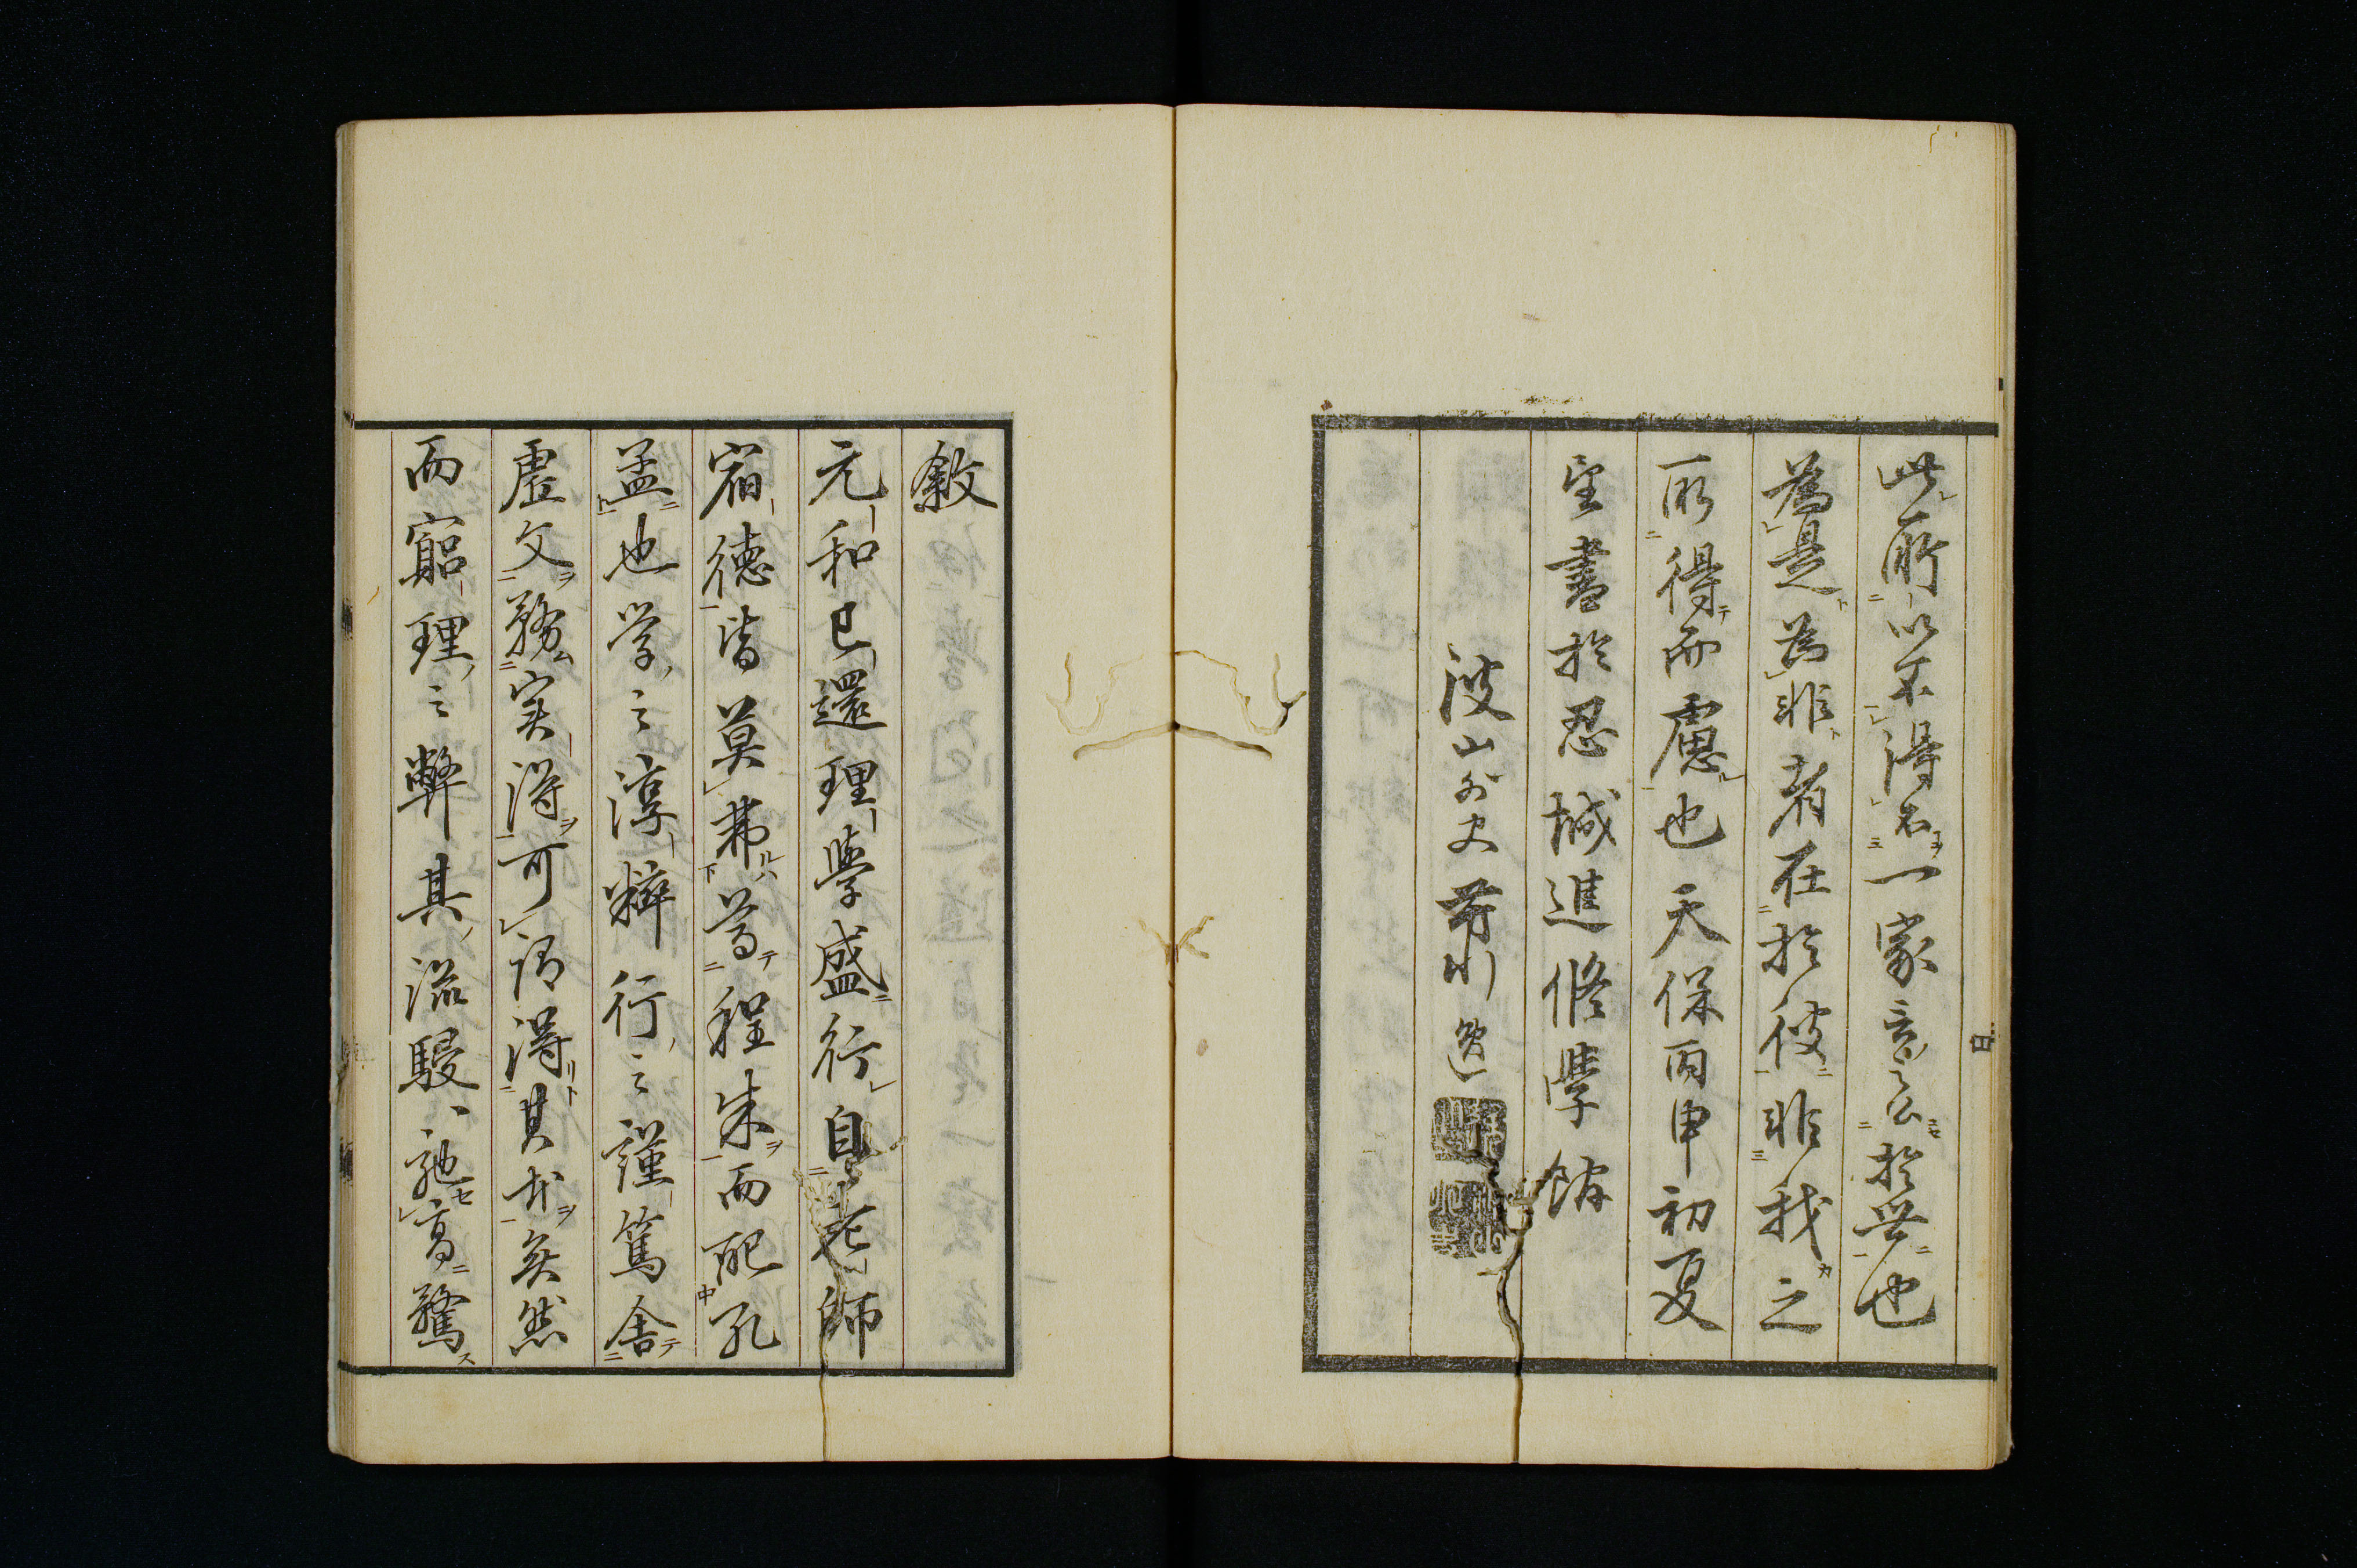 此所以不得名一家言公於世也
為是為非者在於彼非我之
所得而慮也天保丙申初夏
書於忍城進脩學館
波山外史 撰
敘
元和已還理學盛行自老師
宿德皆莫弗尊程朱而配孔
孟也学之淳粹行之謹篤舍
虛文務実得可謂得其本矣然
而窮理之弊其流駸々馳高騖